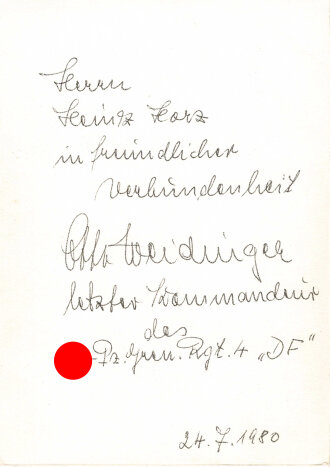 Herrn
Heinz Harz
in freundlicher
Verbundenheit
Otto Weidinger
letzter Kommandeur
des
-Pz. Gren. Rgt. 4 „DF"
24.7.1980